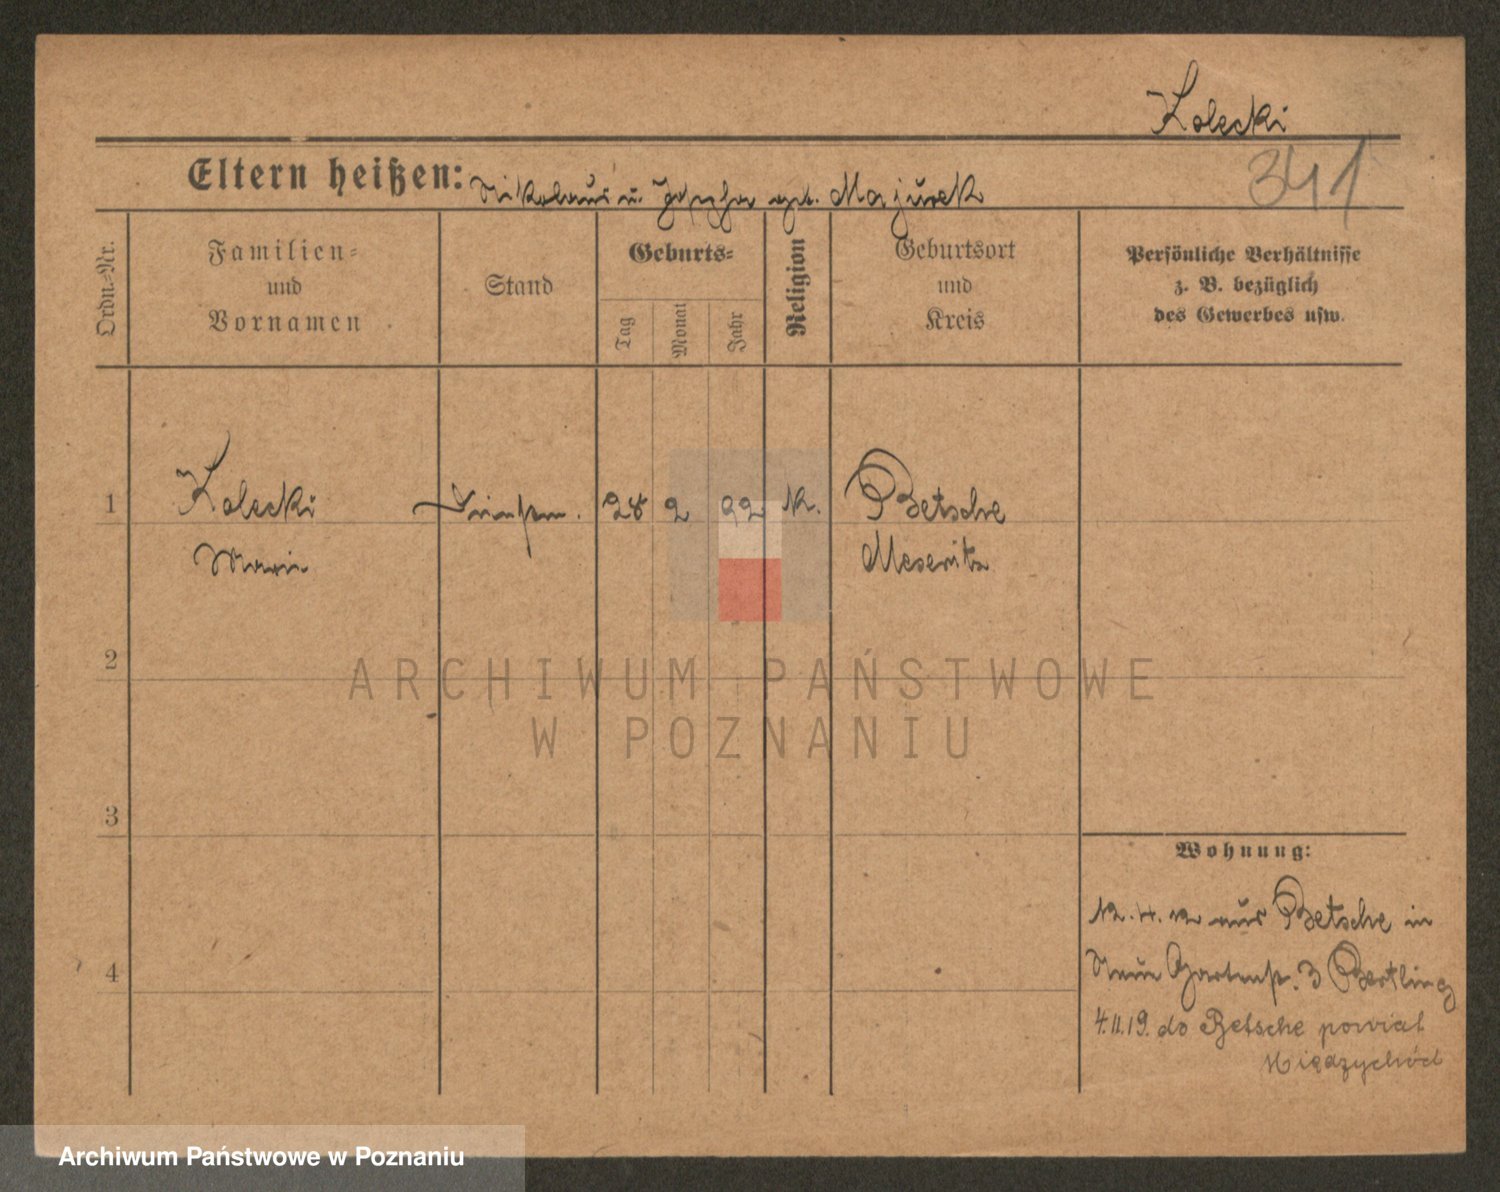 Kolecki
341
Eltern heißen: Nikolaus u. Josepha geb. Majurek
Ordn.-Nr.
Familien-
und
Vornamen
Stand
Geburts-
Tag
Monat
Jahr
Religion
Geburtsort
und
Kreis
Persönliche Verhältnisse
z. B. bezüglich
des Gewerbes usw.
1
Kolecki
28 2 92 K.
Betsche
Maria
Meseritz
2
ARCHIWUM PAŃSTWOWE
W POZNANIU
3
Wohnung:
12.4.12 aus Betsche in
Neue Gartenstr. 3 Bertling
4
4.11.19. do Betsche powiat
Międzychód
Archiwum Państwowe w Poznaniu